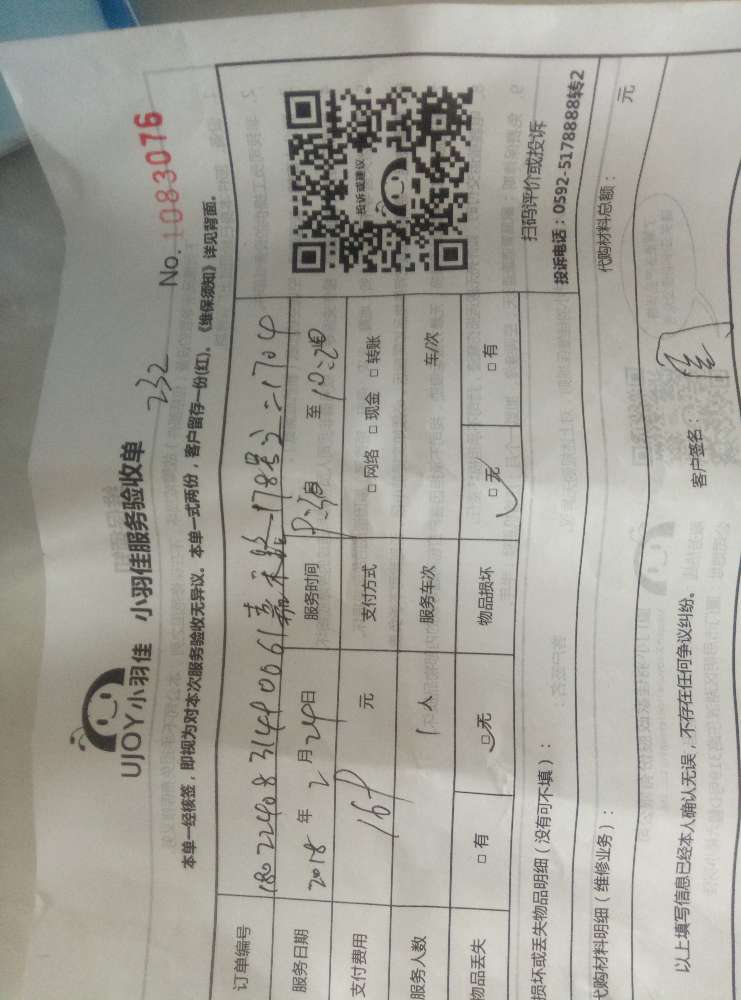 UJOY小羽佳 小羽佳服务验收单
232
No. 1083076
本单一经核签，即视为对本次服务验收无异议。本单一式两份，客户留存一份(红)。《维保须知》详见背面。
订单编号
服务日期 2018 年 2 月 24 日 服务时间 至
支付费用 元 支付方式 □ 网络 □ 现金 □ 转账
服务人数 1 人 服务车次 车/次
物品丢失 □ 有 □ 无 物品损坏 □ 无 □ 有
投诉或建议
扫码评价或投诉
投诉电话：0592-5178888转2
损坏或丢失物品明细（没有可不填）：
代购材料明细（维修业务）： 代购材料总额： 元
以上填写信息已经本人确认无误，不存在任何争议纠纷。 客户签名：